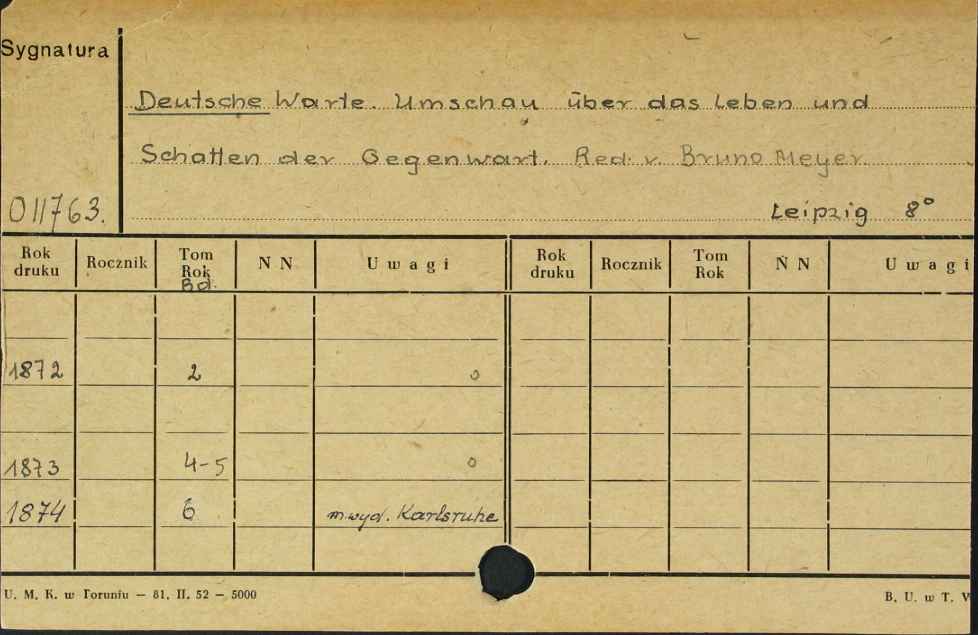 Sygnatura
Deutsche Warte. Umschau über das Leben und
Schatten der Gegenwart. Red. v. Bruno Meyer
011763.
Leipzig 8°
Rok druku Rocznik Tom Rok Bd. N N Uwagi Rok druku Rocznik Tom Rok N N Uwagi
1872 2 o
1873 4-5 o
1874 6 m.wyd. Karlsruhe
U. M. K. w Toruniu — 81. II. 52 — 5000 B. U. w T.